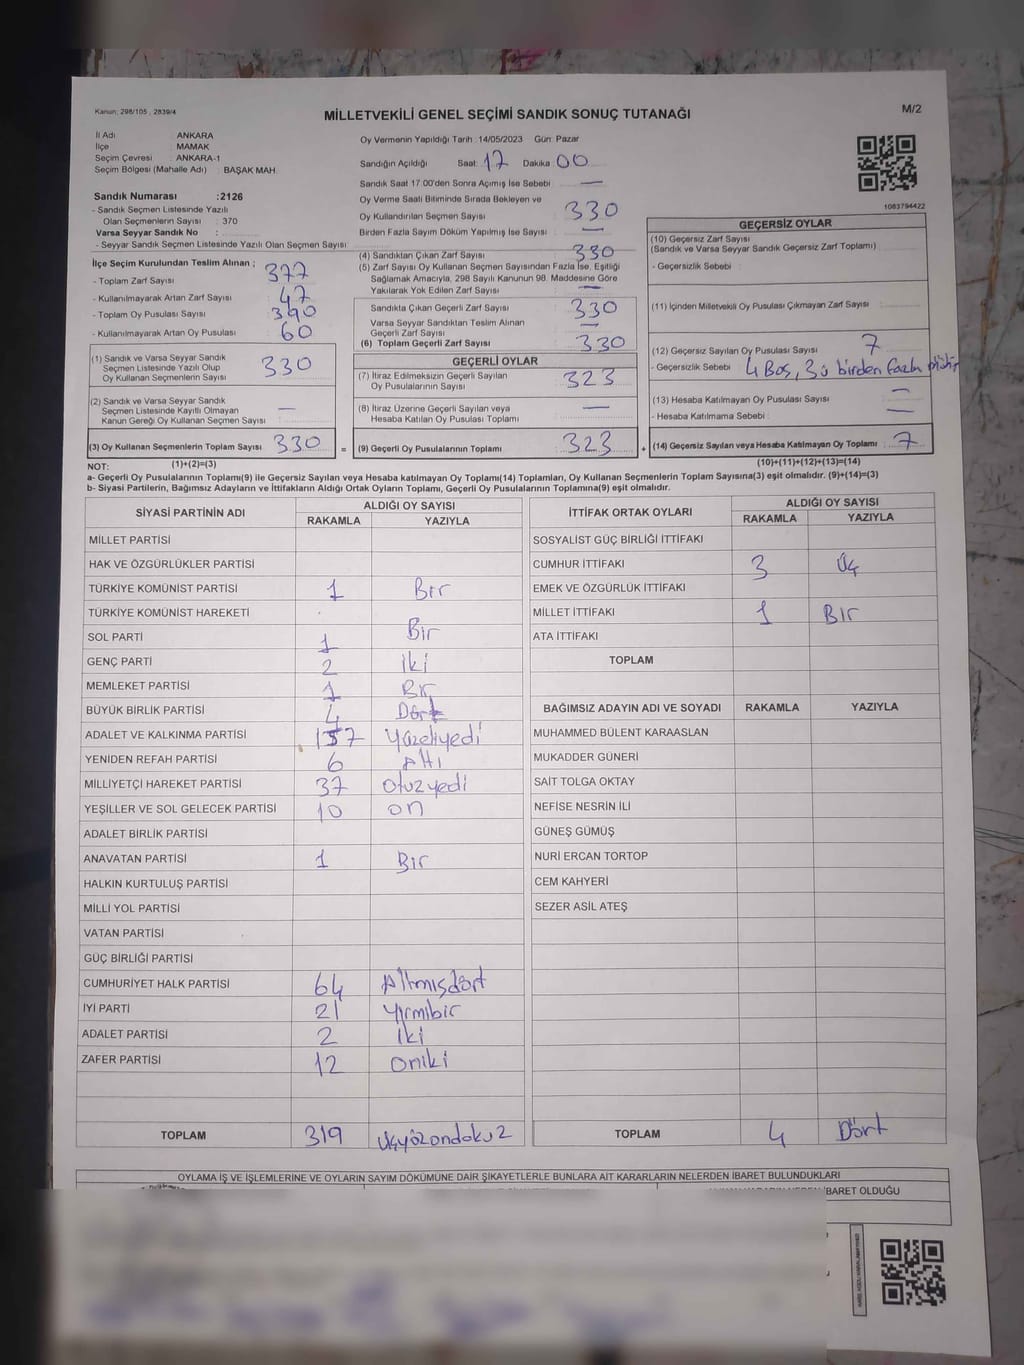 Kanun: 298/105 , 2839/4
MİLLETVEKİLİ GENEL SEÇİMİ SANDIK SONUÇ TUTANAĞI
M/2
İl Adı : ANKARA
İlçe : MAMAK
Seçim Çevresi : ANKARA-1
Seçim Bölgesi (Mahalle Adı) : BAŞAK MAH.
Sandık Numarası :2126
- Sandık Seçmen Listesinde Yazılı
Olan Seçmenlerin Sayısı : 370
Varsa Seyyar Sandık No :
- Seyyar Sandık Seçmen Listesinde Yazılı Olan Seçmen Sayısı:
İlçe Seçim Kurulundan Teslim Alınan ;
- Toplam Zarf Sayısı 377
- Kullanılmayarak Artan Zarf Sayısı 47
- Toplam Oy Pusulası Sayısı 390
- Kullanılmayarak Artan Oy Pusulası 60
(1) Sandık ve Varsa Seyyar Sandık
Seçmen Listesinde Yazılı Olup
Oy Kullanan Seçmenlerin Sayısı 330
(2) Sandık ve Varsa Seyyar Sandık
Seçmen Listesinde Kayıtlı Olmayan
Kanun Gereği Oy Kullanan Seçmen Sayısı —
(3) Oy Kullanan Seçmenlerin Toplam Sayısı 330
Oy Vermenin Yapıldığı Tarih : 14/05/2023 Gün: Pazar
Sandığın Açıldığı Saat: 17 Dakika: 00
Sandık Saat 17.00'den Sonra Açımış İse Sebebi —
Oy Verme Saati Bitiminde Sırada Bekleyen ve
Oy Kullandırılan Seçmen Sayısı 330
Birden Fazla Sayım Döküm Yapılmış İse Sayısı —
(4) Sandıktan Çıkan Zarf Sayısı 330
(5) Zarf Sayısı Oy Kullanan Seçmen Sayısından Fazla İse, Eşitliği
Sağlamak Amacıyla, 298 Sayılı Kanunun 98. Maddesine Göre
Yakılarak Yok Edilen Zarf Sayısı —
Sandıkta Çıkan Geçerli Zarf Sayısı 330
Varsa Seyyar Sandıktan Teslim Alınan
Geçerli Zarf Sayısı —
(6) Toplam Geçerli Zarf Sayısı 330
GEÇERLİ OYLAR
(7) İtiraz Edilmeksizin Geçerli Sayılan
Oy Pusulalarının Sayısı 323
(8) İtiraz Üzerine Geçerli Sayılan veya
Hesaba Katılan Oy Pusulaları Toplamı —
= (9) Geçerli Oy Pusulalarının Toplamı 323
1083794422
GEÇERSİZ OYLAR
(10) Geçersiz Zarf Sayısı
(Sandık ve Varsa Seyyar Sandık Geçersiz Zarf Toplamı)
- Geçersizlik Sebebi :
(11) İçinden Milletvekili Oy Pusulası Çıkmayan Zarf Sayısı
(12) Geçersiz Sayılan Oy Pusulası Sayısı 7
- Geçersizlik Sebebi : 4 Boş, 3ü birden fazla
(13) Hesaba Katılmayan Oy Pusulası Sayısı —
- Hesaba Katılmama Sebebi : —
+ (14) Geçersiz Sayılan veya Hesaba Katılmayan Oy Toplamı 7
NOT: (1)+(2)=(3) (10)+(11)+(12)+(13)=(14)
a- Geçerli Oy Pusulalarının Toplamı(9) ile Geçersiz Sayılan veya Hesaba katılmayan Oy Toplamı(14) Toplamları, Oy Kullanan Seçmenlerin Toplam Sayısına(3) eşit olmalıdır. (9)+(14)=(3)
b- Siyasi Partilerin, Bağımsız Adayların ve İttifakların Aldığı Ortak Oyların Toplamı, Geçerli Oy Pusulalarının Toplamına(9) eşit olmalıdır.
SİYASİ PARTİNİN ADI ALDIĞI OY SAYISI
RAKAMLA YAZIYLA
MİLLET PARTİSİ
HAK VE ÖZGÜRLÜKLER PARTİSİ
TÜRKİYE KOMÜNİST PARTİSİ 1 Bir
TÜRKİYE KOMÜNİST HAREKETİ
SOL PARTİ 1 Bir
GENÇ PARTİ 2 iki
MEMLEKET PARTİSİ 1 Bir
BÜYÜK BİRLİK PARTİSİ 4 Dört
ADALET VE KALKINMA PARTİSİ 157 Yüzelliyedi
YENİDEN REFAH PARTİSİ 6 Altı
MİLLİYETÇİ HAREKET PARTİSİ 37 otuzyedi
YEŞİLLER VE SOL GELECEK PARTİSİ 10 on
ADALET BİRLİK PARTİSİ
ANAVATAN PARTİSİ 1 Bir
HALKIN KURTULUŞ PARTİSİ
MİLLİ YOL PARTİSİ
VATAN PARTİSİ
GÜÇ BİRLİĞİ PARTİSİ
CUMHURİYET HALK PARTİSİ 64 Altmışdört
İYİ PARTİ 21 Yirmibir
ADALET PARTİSİ 2 iki
ZAFER PARTİSİ 12 oniki
TOPLAM 319 üçyüzondokuz
İTTİFAK ORTAK OYLARI ALDIĞI OY SAYISI
RAKAMLA YAZIYLA
SOSYALİST GÜÇ BİRLİĞİ İTTİFAKI
CUMHUR İTTİFAKI 3 üç
EMEK VE ÖZGÜRLÜK İTTİFAKI
MİLLET İTTİFAKI 1 Bir
ATA İTTİFAKI
TOPLAM
BAĞIMSIZ ADAYIN ADI VE SOYADI RAKAMLA YAZIYLA
MUHAMMED BÜLENT KARAASLAN
MUKADDER GÜNERİ
SAİT TOLGA OKTAY
NEFİSE NESRİN İLİ
GÜNEŞ GÜMÜŞ
NURİ ERCAN TORTOP
CEM KAHYERİ
SEZER ASİL ATEŞ
TOPLAM 4 Dört
OYLAMA İŞ VE İŞLEMLERİNE VE OYLARIN SAYIM DÖKÜMÜNE DAİR ŞİKAYETLERLE BUNLARA AİT KARARLARIN NELERDEN İBARET BULUNDUKLARI
İBARET OLDUĞU